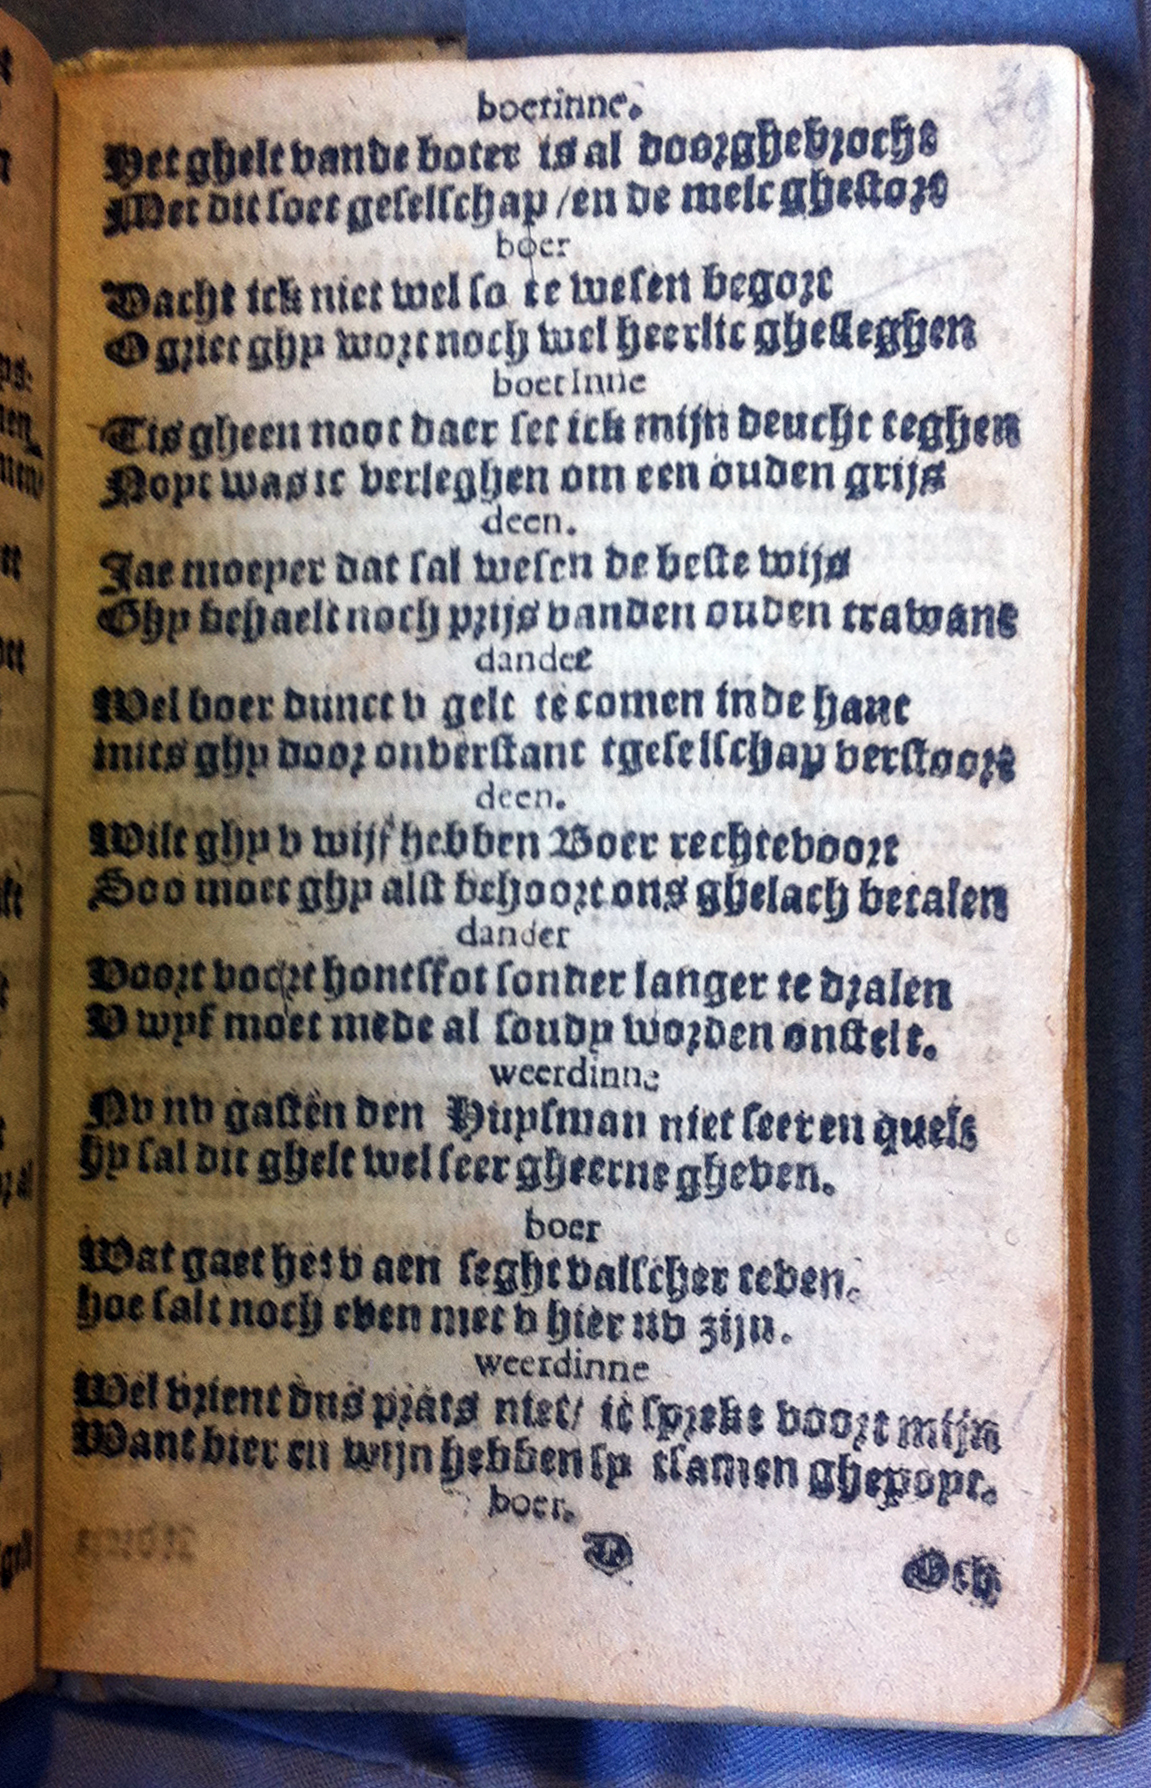 boerinne.
Het ghelt vande boter is al doorghebrocht
Met dit soet geselschap /en de melc ghestort
boer
Dacht ick niet wel so te wesen begort
O griet ghy wort noch wel heerlic ghesleghen
boerinne
Tis gheen noot daer set ick mijn deucht teghen
Noyt was ic verleghen om een ouden grijs
deen.
Jae moeyer dat sal wesen de beste wijs
Ghy behaelt noch prijs vanden ouden trawant
dander
Wel boer dunct v gelt te comen in de hant
mits ghy door onverstant tgeselschap verstoort
deen.
Wilt ghy v wijf hebben Boer rechtevoort
Soo moet ghy alst behoort ons ghelach betalen
dander
Voort voort hontsfot sonder langer te dralen
V wyf moet mede al soudy worden onstelt.
weerdinne
Nv nv gasten den Huysman niet seer en quelt
hy sal dit ghelt wel seer gheerne gheven.
boer
Wat gaet het v aen seght valscher teven.
hoe salt noch even met v hier nv zijn.
weerdinne
Wel vrient dus prats niet/ ic spreke voort mijn
Want bier en wijn hebben sy tsamen ghepoyt.
boer.
D
Och